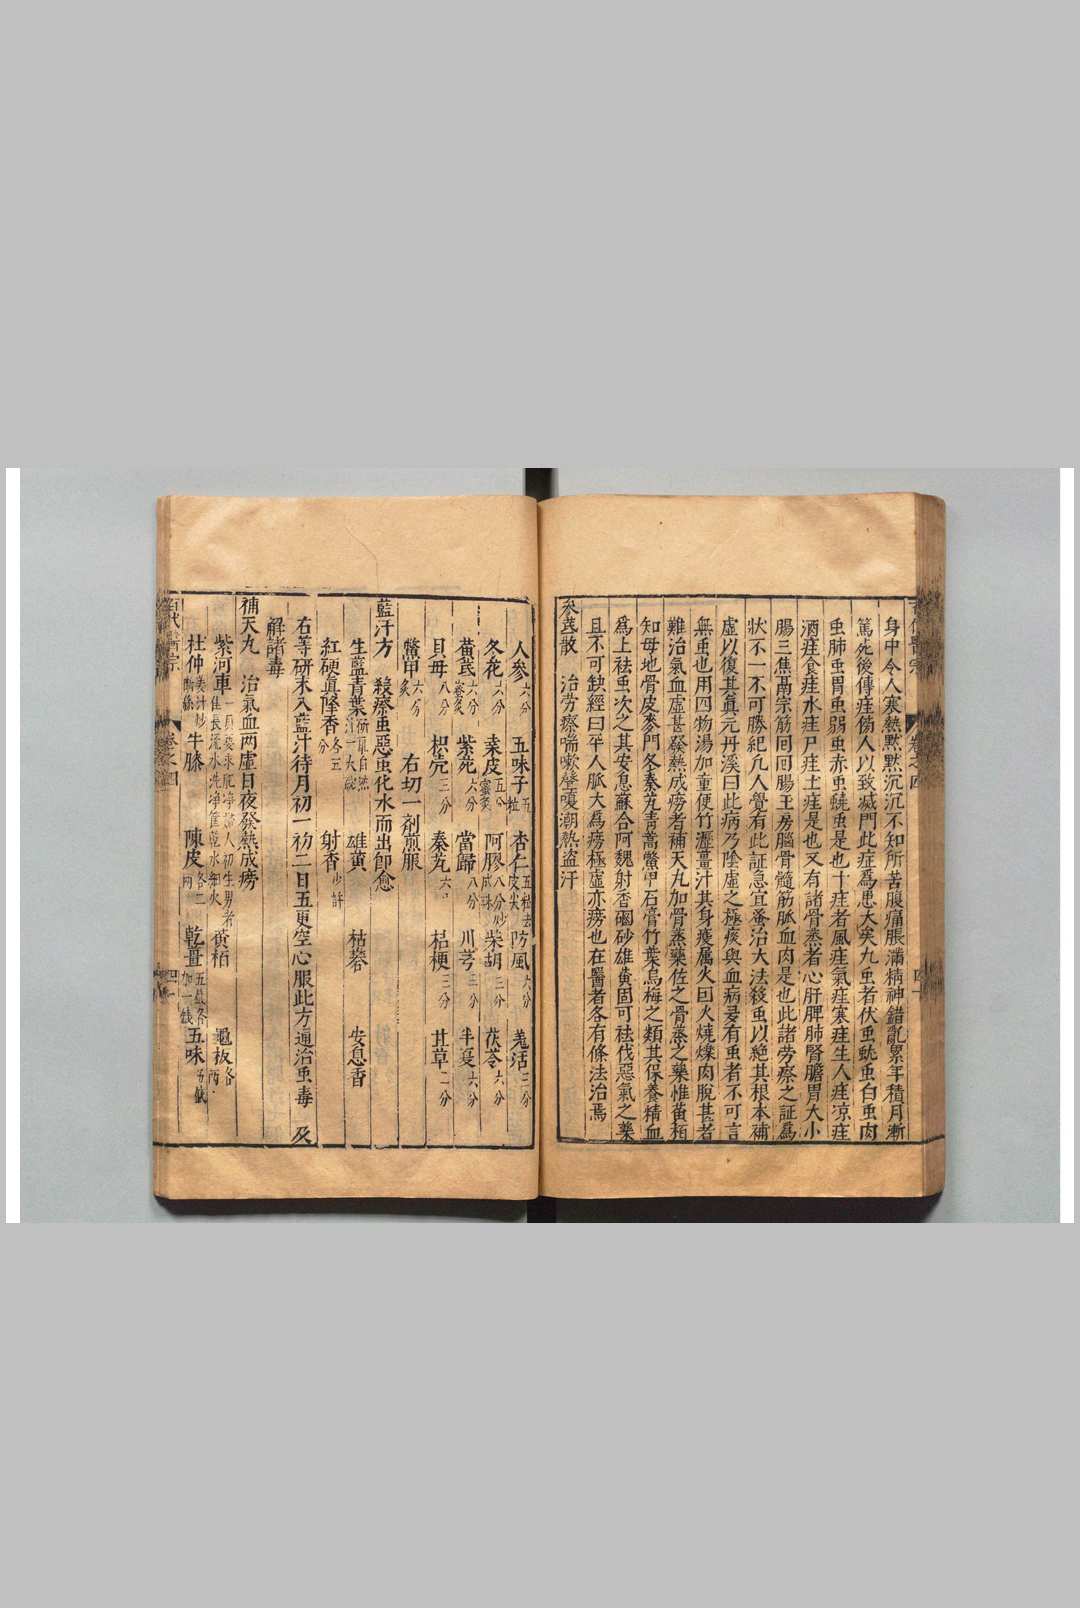 身中令人寒熱默默沉沉不知所苦腹痛脹滿精神錯亂累年積月漸
篤死後傳疰傍人以致滅門此症爲患大矣九虫者伏虫蚘虫白虫肉
虫肺虫胃虫弱虫赤虫蟯虫是也十疰者風疰氣疰寒疰生人疰凉疰
酒疰食疰水疰尸疰土疰是也又有諸骨蒸者心肝脾肺腎膽胃大小
腸三焦鬲宗筋回回腸玉房腦骨髓筋脈血肉是也此諸劳瘵之証爲
狀不一不可勝紀凡人覺有此証急宜蚤治大法殺虫以絶其根本補
虛以復其眞元丹溪曰此病乃陰虛之極痰與血病多有虫者不可言
無虫也用四物湯加童便竹瀝薑汁其身瘦属火曰火燒爍肉脫甚者
難治氣血虛甚發熱成痨者補天丸加骨蒸藥佐之骨蒸之藥惟黃栢
知母地骨皮麥門冬秦艽青蒿鱉甲石膏竹葉烏梅之類其保養精血
爲上祛虫次之其安息蘇合阿魏射香硇砂雄黃固可祛伐惡氣之藥
且不可缺經曰平人脈大爲痨極虛亦痨也在醫者各有條法治焉
参芪散 治劳瘵喘嗽聲嗄潮熱盗汗
人参六分 五味子五粒 杏仁五粒去皮尖 防風六分 羗活三分
冬花六分 桒皮五分蜜炙 阿膠八分炒成珠 柴胡三分 茯苓六分
黃芪六分蜜炙 紫菀六分 當歸八分 川芎三分 半夏六分
貝母八分 枳壳三分 秦艽六 桔梗三分 甘草二分
鱉甲炙六分 右切一剤煎服
藍汁方 殺瘵虫惡虫化水而出卽愈
生藍青葉 雄黃 枯礬 安息香
紅硬眞降香各五分 射香少許
右等研末入藍汁待月初一初二日五更空心服此方通治虫毒及
解諸毒
補天丸 治氣血两虛日夜發熱成痨
紫河車 黃栢 龜板各
杜仲姜汁炒断絲 牛膝 陳皮各二两 乾薑五戔冬加一戔 五味五戔
百代醫宗 卷之四 四十